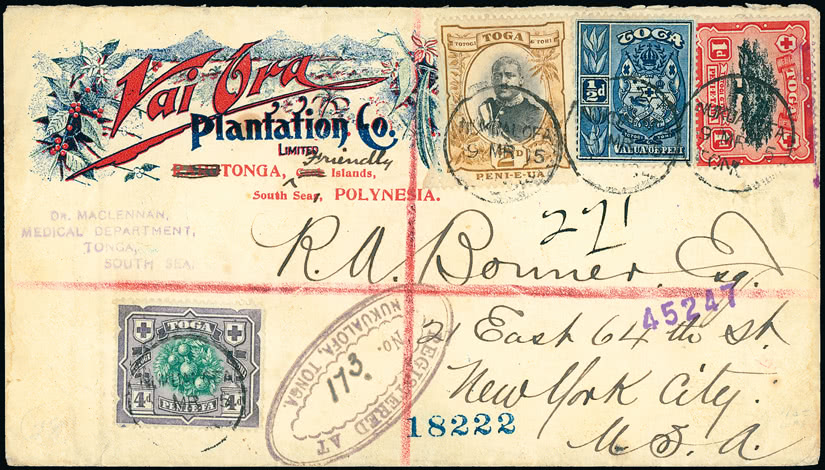 Vai Ora
Plantation Co.
LIMITED
TONGA, Friendly Islands,
South Sea, POLYNESIA.
DR. MACLENNAN,
MEDICAL DEPARTMENT,
TONGA,
SOUTH SEA.
TOGA
TOTOGI & TOHI
2D
PENI-E-UA
TOGA
½d
VALUA·OE PENI
TOGA
1d
1d
NUKUALOFA
9 MR 15
NUKUALOFA
9 MR 15
271
R. A. Bonner, Esq.
21 East 64th St.
New York City.
U. S. A.
45247
18222
TOGA
4d
4d
PENI E FA
MR 15
REGISTERED AT
No. 173.
NUKUALOFA, TONGA.